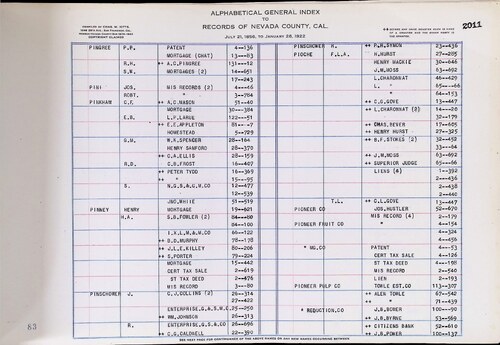 ALPHABETICAL GENERAL INDEX
TO
RECORDS OF NEVADA COUNTY, CAL.
JULY 21, 1856, TO JANUARY 28, 1922
COPYRIGHT CLAIMED
2011
PINGREE P.P. PATENT 4—136
MORTGAGE (CHAT) 13—83
R.H. ++ A.C.PINGREE 131—12
S.W. MORTGAGES (2) 14—651
17—243
PINI JOS. MIS RECORDS (2) 4—46
ROBT. " 3—704
PINKHAM C.F. ++ A.C.HANSON 51—40
MORTGAGE 30—384
E.B. L.F.LARUE 122—51
++ E.E.APPLETON 81—7
HOMESTEAD 5—729
G.W. W.R.SPENCER 28—164
HENRY SANFORD 28—370
++ C.A.ELLIS 28—159
R.B. ++ C.B.FROST 16—407
++ PETER TYDD 16—369
++ " 15—95
S. N.G.S.&U.W.CO 12—477
12—539
JNO.WHITE 51—519
PINNEY HENRY MORTGAGE 19—601
H.A. S.B.FOWLER (2) 84—80
84—100
I.X.L.M.&M.CO 66—122
++ B.D.MURPHY 78—178
++ J.L.E.KILLEY 80—206
++ S.PORTER 79—224
MORTGAGE 15—442
CERT TAX SALE 2—619
ST TAX DEED 2—476
MIS RECORD 3—80
PINSCHOWER J. C.J.COLLINS (2) 26—314
27—422
ENTERPRISE,G.&S.W.CO 25—250
++ WM.JOHNSON 26—313
R. ENTERPRISE,G.S.&CO 26—696
++ C.G.CALDWELL 22—390
PINSCHOWER R. ++ R.H.SYMON 23—436
PIOCHE F.L.A. H.HURST 27—285
HENRY MACKIE 30—646
J.W.MOSS 63—692
L.CHARDONNET 46—429
L. " 65—66
" 64—153
++ C.S.GOVE 13—447
++ L.CHARDONNET (2) 14—20
32—179
++ CHAS.SEVER 17—605
++ HENRY HURST 27—325
++ B.F.STOKES (2) 32—452
33—64
++ J.W.MOSS 63—692
++ SUPERIOR JUDGE 65—66
LIENS (4) 1—392
2—436
2—438
2—440
T.L. ++ C.L.GOVE 13—447
PIONEER CO JOS.HUSTLER 52—670
MIS RECORD (4) 2—179
PIONEER FRUIT CO " 4—154
4—324
4—456
" MG.CO PATENT 4—53
CERT TAX SALE 4—126
ST TAX DEED 4—198
MIS RECORD 2—540
LIEN 2—193
PIONEER PULP CO TOWLE EST.CO 113—307
++ ALEN TOWLE 67—542
++ " 71—439
" REDUCTION,CO J.B.BONER 100—90
++ J.R.BYRNE 53—569
++ CITIZENS BANK 52—610
++ J.B.POWER 100—137
83